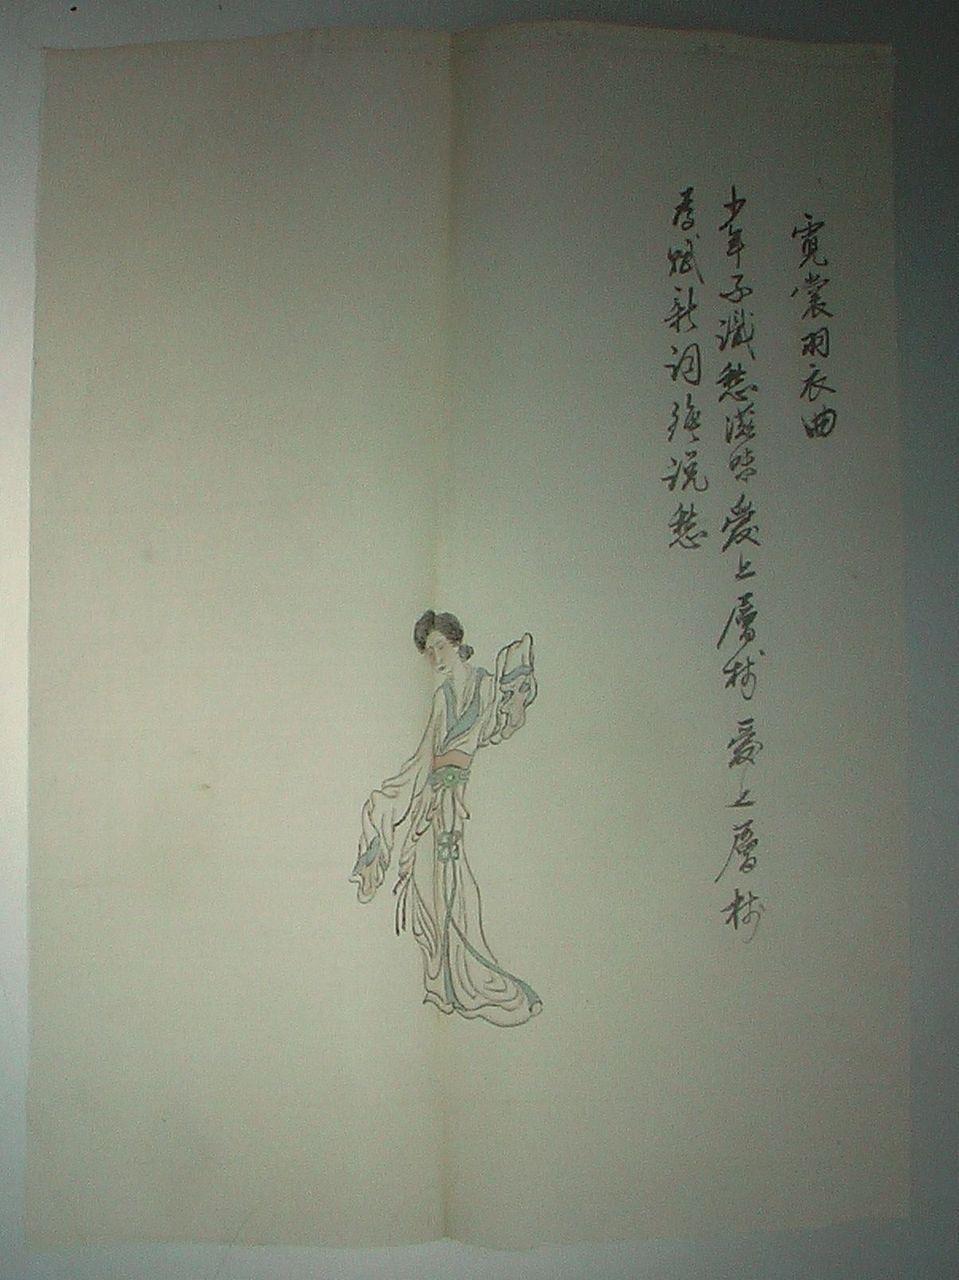 霓裳羽衣曲
少年不識愁滋味愛上層樓愛上層樓
為賦新词強说愁